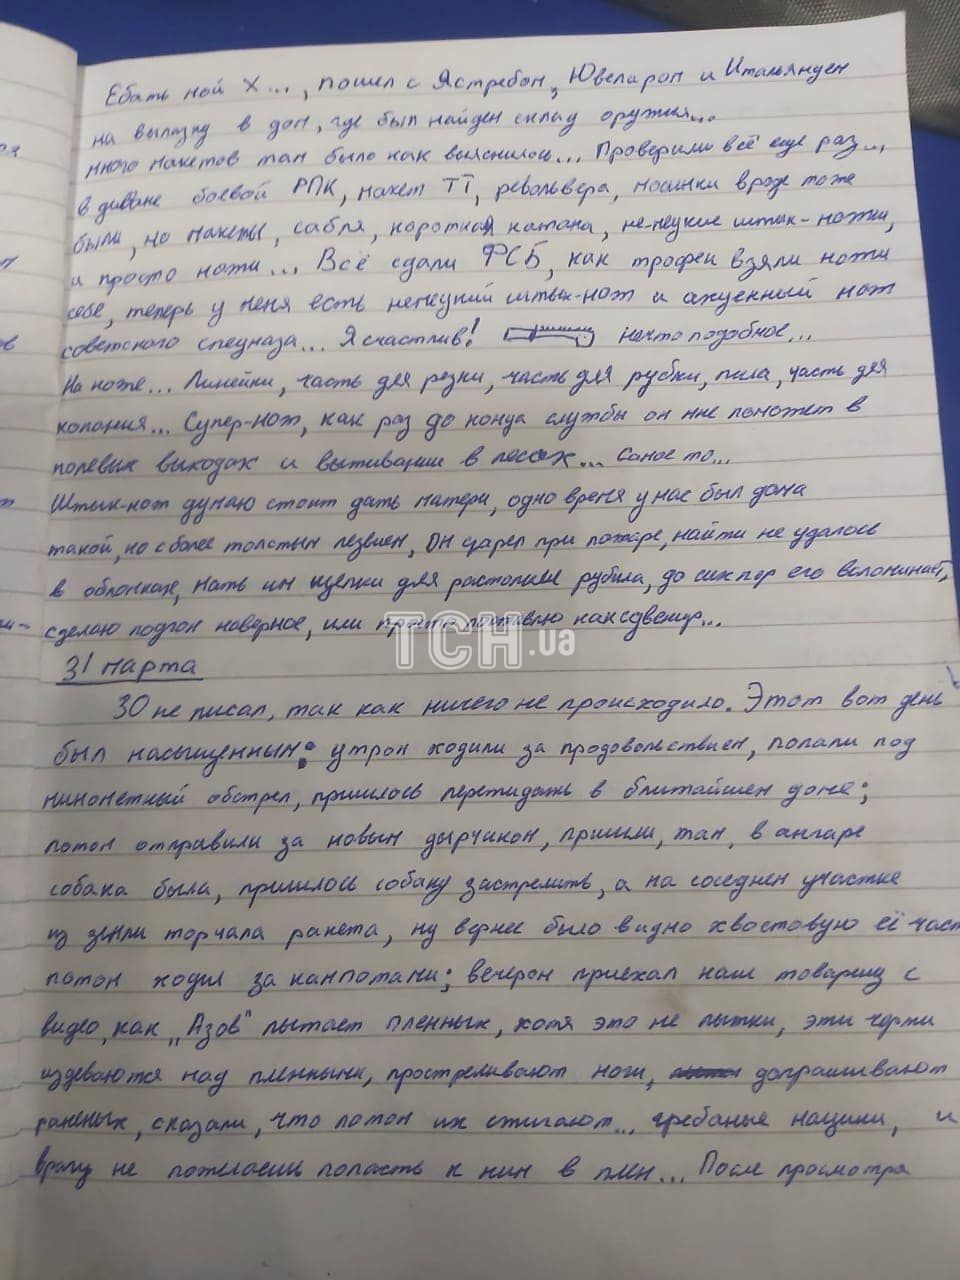 Ебать мой Х..., пошел с Ястребом, Ювелиром и Итальянцем
на вылазку в дом, где был найден склад оружия...
много макетов там было как выяснилось... Проверили всё еще раз...
в диване боевой РПК, макет ТТ, револьвера, мосинки вроде тоже
были, но макеты, сабля, короткая катана, не-мецкие штык-ножи,
и просто ножи... Всё сдали ФСБ, как трофеи взяли ножи
себе, теперь у меня есть немецкий штык-нож и ахуенный нож
советского спецназа... Я счастлив! нечто подобное...
На ноже... Линейки, часть для резки, часть для рубки, пила, часть для
копания... Супер-нож, как раз до конца службы он мне поможет в
полевых выходах и выживании в лесах... Самое то...
Штык-нож думаю стоит дать матери, одно время у нас был дома
такой, но с более толстым лезвием, он сгорел при пожаре, найти не удалось
в обломках, мать им щепки для растопки рубила, до сих пор его вспоминает,
сделаю подгон наверное, или просто поставлю как сувенир...
ТСН.ua
31 марта
30 не писал, так как ничего не происходило. Этот вот день
был насыщенным: утром ходили за продовольствием, попали под
минометный обстрел, пришлось пережидать в ближайшем доме;
потом отправили за новым дырчиком, пришли, там, в ангаре
собака была, пришлось собаку застрелить, а на соседнем участке
из земли торчала ракета, ну вернее было видно хвостовую её част
потом ходил за компотами; вечером приехал наш товарищ с
видео, как „Азов" пытает пленных, хотя это не пытки, эти черти
издеваются над пленными, простреливают ноги, допрашивают
раненых, сказали, что потом их сжигают... гребаные нацики, и
врагу не пожелаешь попасть к ним в плен... После просмотра